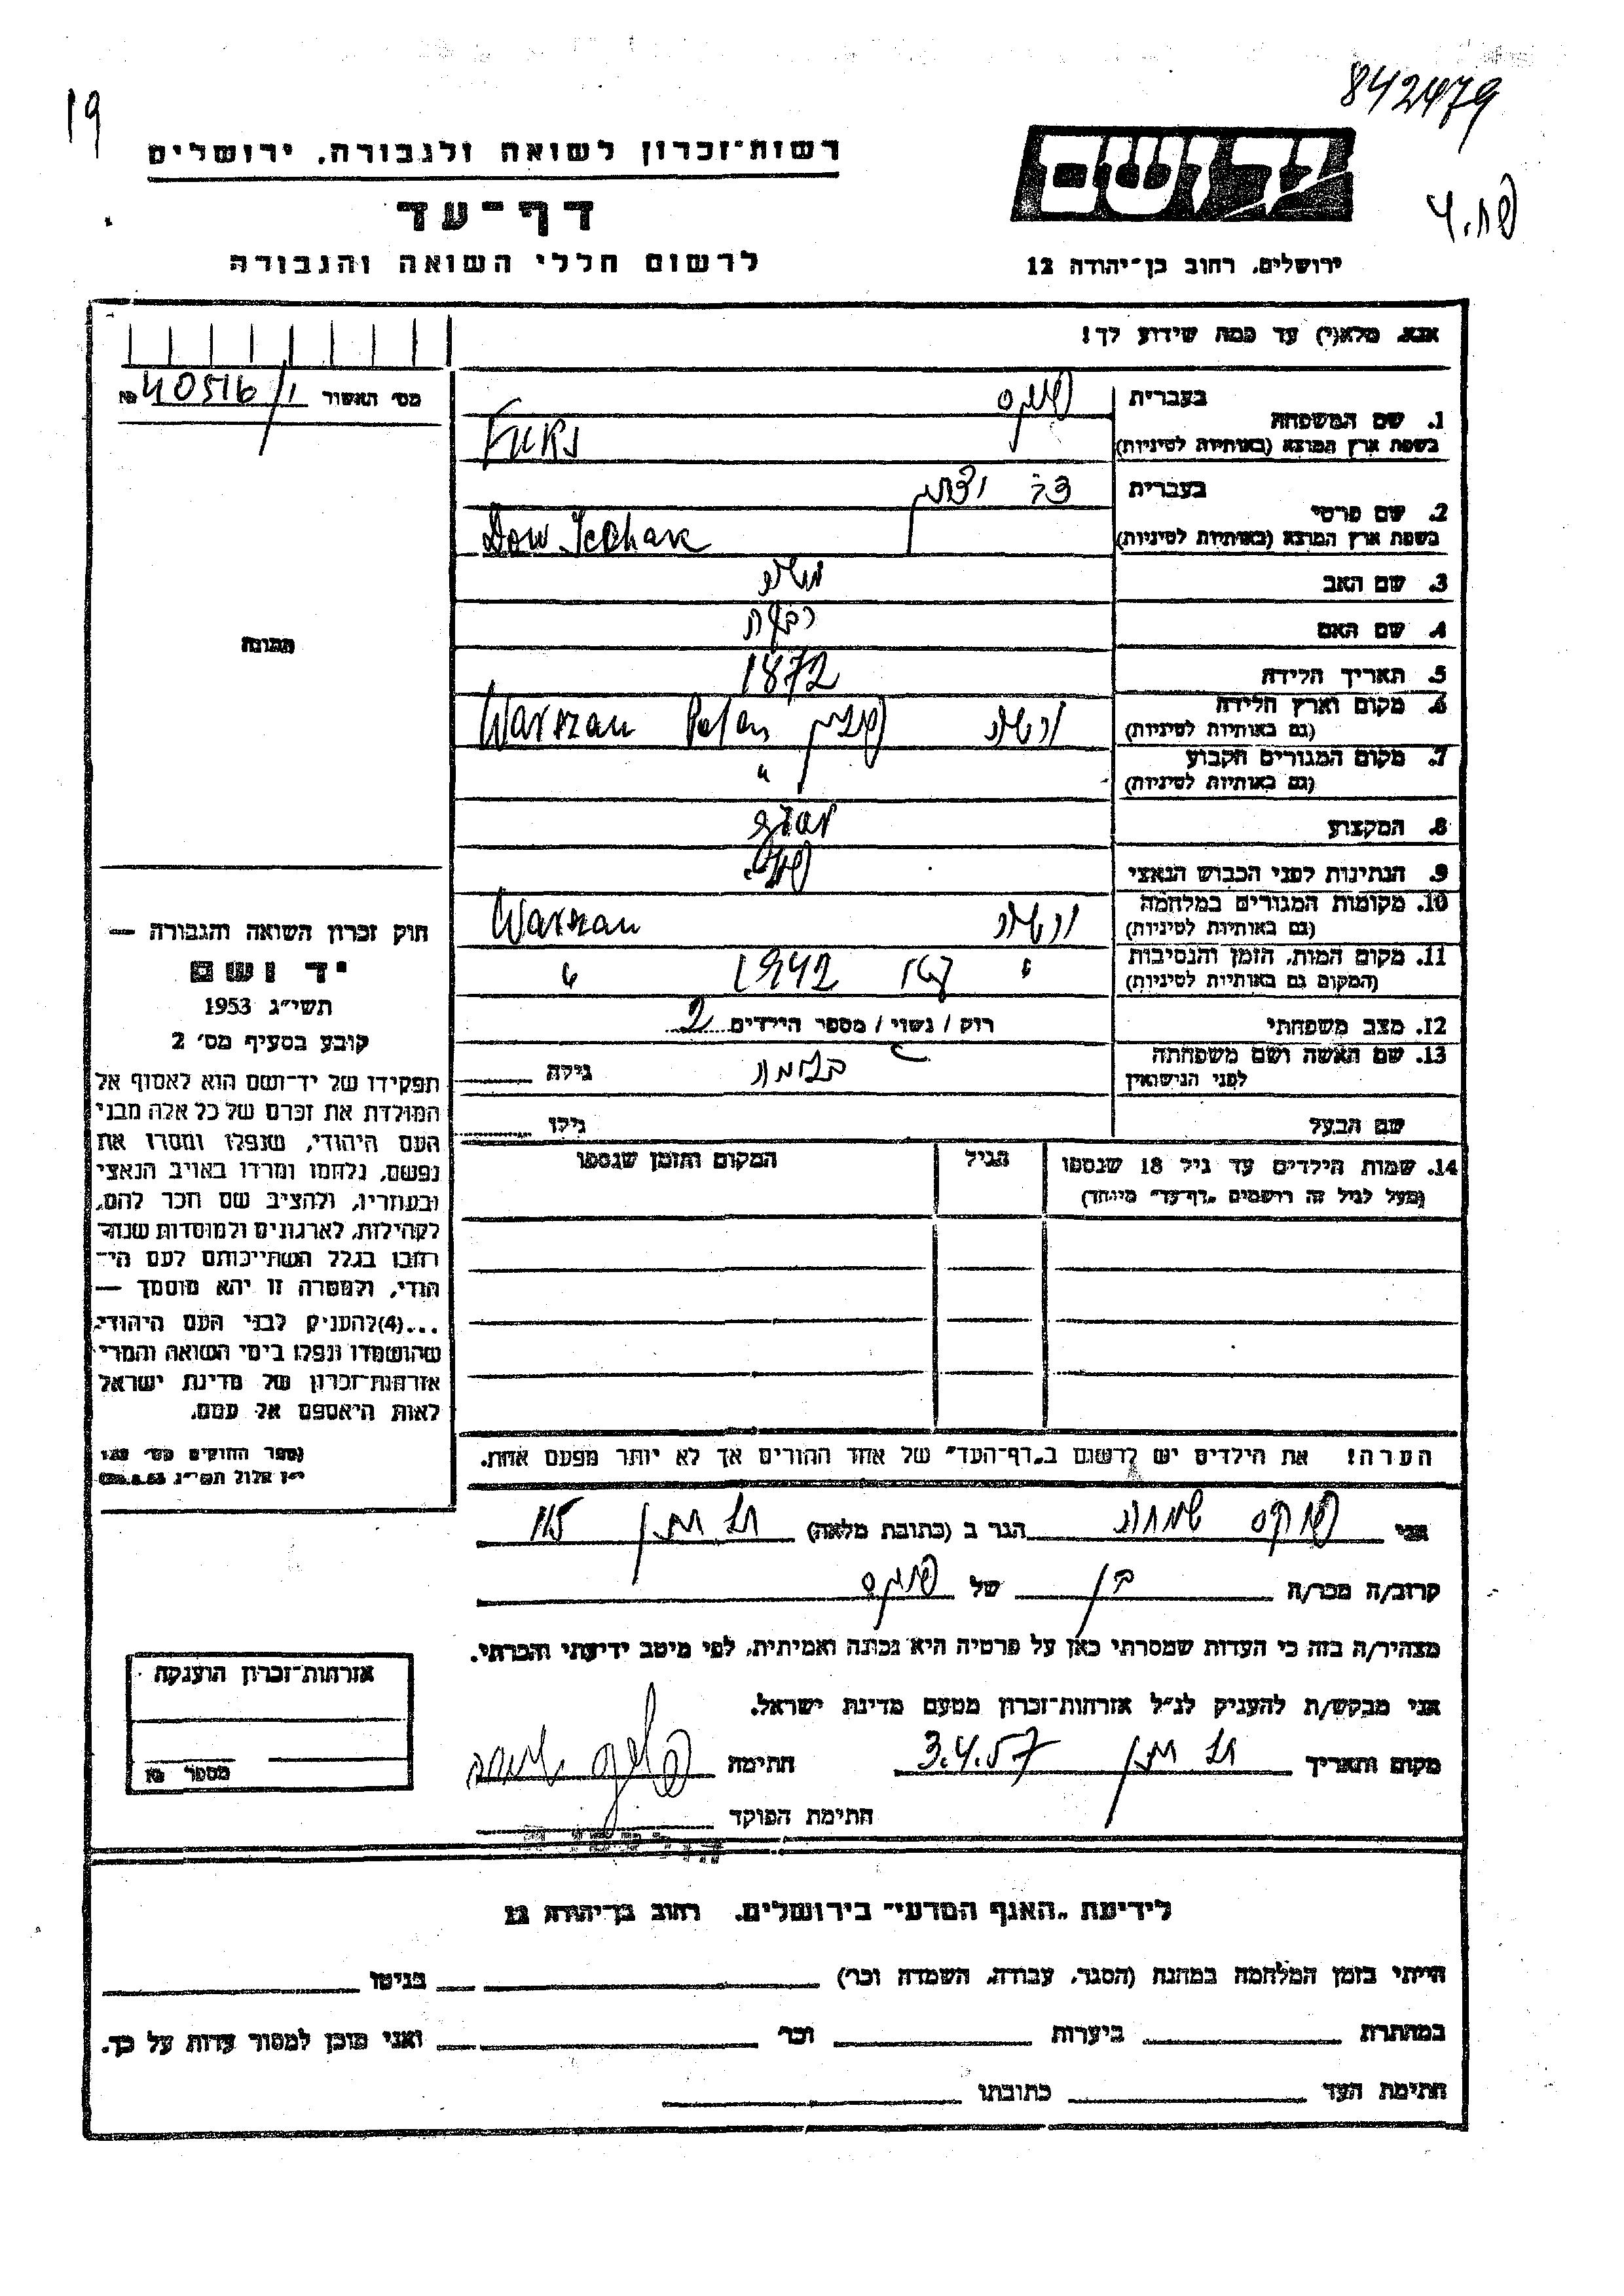 842479
19
פח.4
יד ושם
רשות־זכרון לשואה ולגבורה, ירושלים
דף־עד
ירושלים, רחוב בן־יהודה 12
לרשום חללי השואה והגבורה
אנא, מלא(י) עד כמה שידוע לך!
מס׳ האשור 40516/1 №
תמונה
1. שם המשפחה
בעברית פוקס
בשפת ארץ המוצא (באותיות לטיניות) Fuks
2. שם פרטי
בעברית דב יצחק
בשפת ארץ המוצא (באותיות לטיניות) Dow
3. שם האב משה
4. שם האם רבקה
5. תאריך הלידה 1872
6. מקום וארץ הלידה ורשה פולין Warszau Polen
(גם באותיות לטיניות)
7. מקום המגורים הקבוע "
(גם באותיות לטיניות)
8. המקצוע
9. הנתינות לפני הכבוש הנאצי
10. מקומות המגורים במלחמה ורשה Warszau
(גם באותיות לטיניות)
11. מקום המות, הזמן והנסיבות " גטו 1942 "
(המקום גם באותיות לטיניות)
12. מצב משפחתי רוק / נשוי / מספר הילדים 2
13. שם האשה ושם משפחתה גילה
לפני הנישואין
שם הבעל גילו
14. שמות הילדים עד גיל 18 שנספו הגיל המקום והזמן שנספו
(מעל לגיל זה רושמים „דף־עד" מיוחד)
הערה! את הילדים יש לרשום ב„דף־העד" של אחד ההורים אך לא יותר מפעם אחת.
חוק זכרון השואה והגבורה —
יד ושם
תשי״ג 1953
קובע בסעיף מס׳ 2
תפקידו של יד־ושם הוא לאסוף אל
המולדת את זכרם של כל אלה מבני
העם היהודי, שנפלו ומסרו את
נפשם, נלחמו ומרדו באויב הנאצי
ובעוזריו, ולהציב שם וזכר להם,
לקהילות, לארגונים ולמוסדות שנח־
רחבו בגלל השתייכותם לעם הי־
הודי, ולמטרה זו יהא מוסמך —
...(4)להעניק לבני העם היהודי
שהושמדו ונפלו בימי השואה והמרי
אזרחות־זכרון של מדינת ישראל
לאות היאספם אל עמם.
(ספר החוקים מס׳ 132
י״ז אלול תשי״ג 28.8.53)
אני פוקס שמחה הגר ב (כתובת מלאה)
קרוב/ה מכר/ה בן של פוקס
מצהיר/ה בזה כי העדות שמסרתי כאן על פרטיה היא נכונה ואמיתית, לפי מיטב ידיעתי והכרתי.
אני מבקש/ת להעניק לנ״ל אזרחות־זכרון מטעם מדינת ישראל.
מקום ותאריך 3.4.57 חתימה
חתימת הפוקד
אזרחות־זכרון הוענקה
מספר №
לידיעת „האגף המדעי" בירושלים, רחוב בן־יהודה 12
הייתי בזמן המלחמה במחנה (הסגר, עבודה, השמדה וכו׳) בגיטו
במחתרת ביערות וכו׳ ואני מוכן למסור עדות על כך.
חתימת העד כתובתו